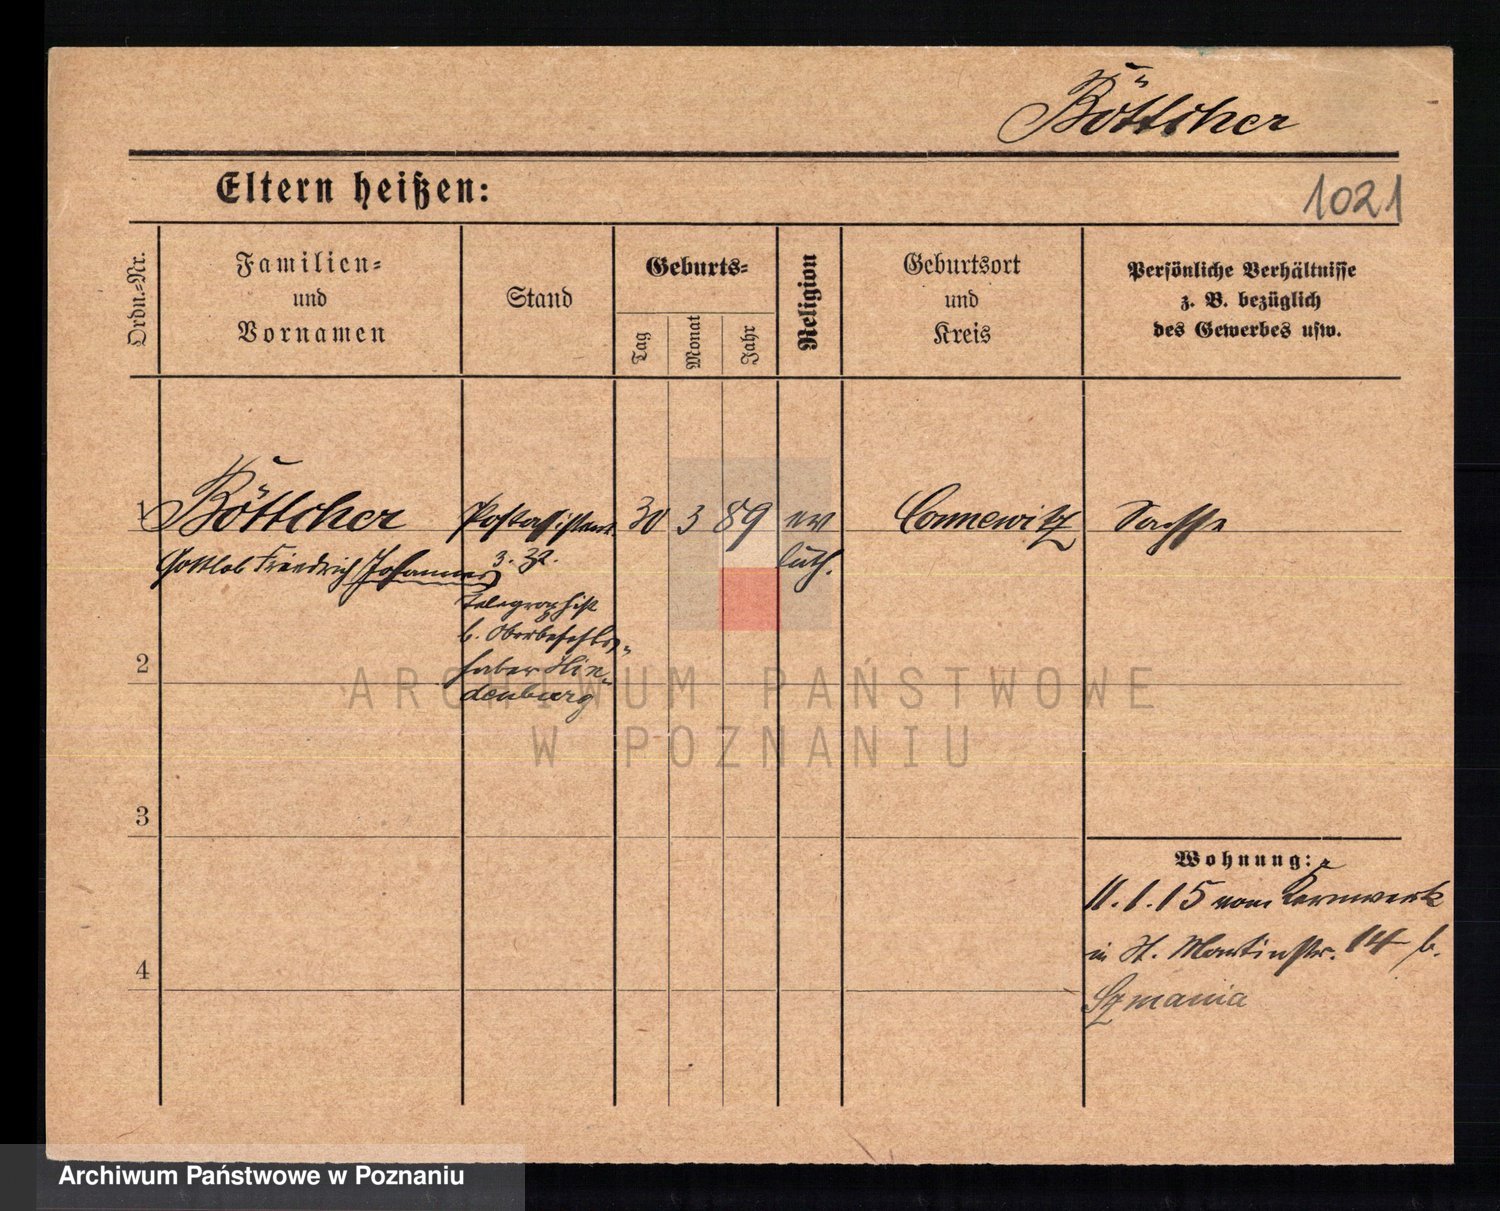 Böttcher
Eltern heißen:
1021
Ordn.-Nr.
Familien-
und
Vornamen
Stand
Geburts-
Tag
Monat
Jahr
Religion
Geburtsort
und
Kreis
Persönliche Verhältnisse
z. B. bezüglich
des Gewerbes usw.
1 Böttcher Postassistent 30 3 89 ev Connewitz Sachse
Gottlob Friedrich Johannes z. Zt. luth.
Telegraphist
b. Oberbefehls-
2 haber Hin-
denburg
ARCHIWUM PAŃSTWOWE
W POZNANIU
3
Wohnung:
11.1.15 vom Kernwerk
in St. Martinstr. 14 b.
4
Szmania
Archiwum Państwowe w Poznaniu